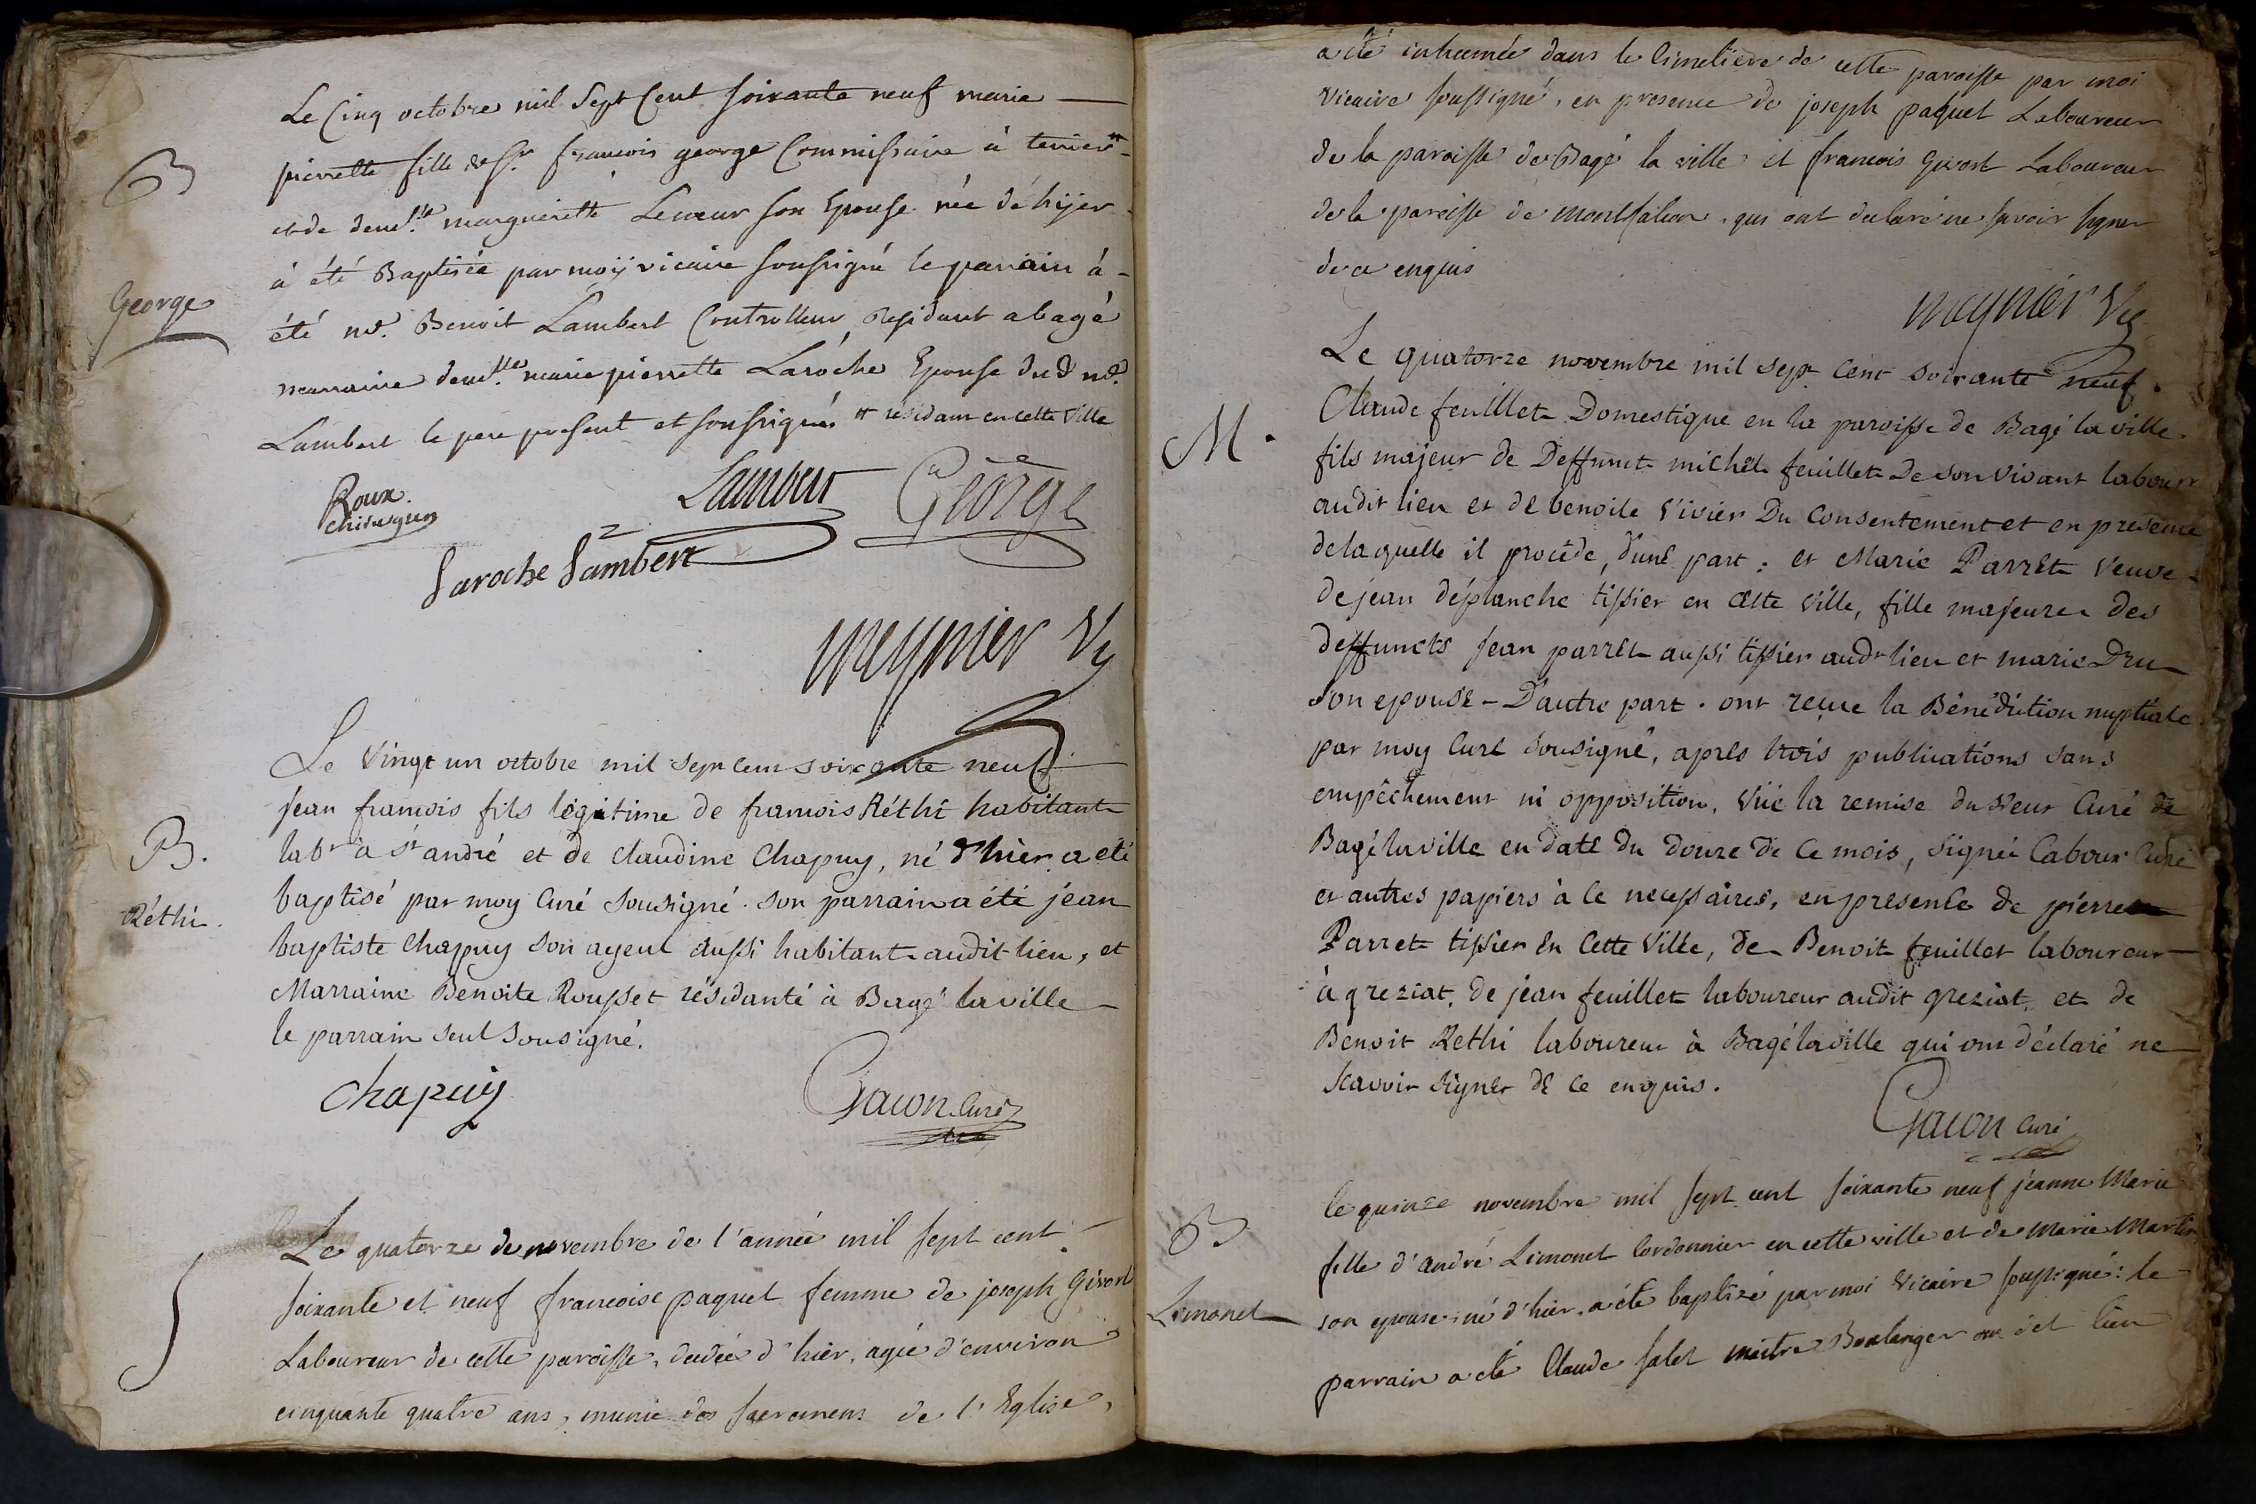 Le Cinq octobre mil Sept Cent soixante neuf marie
pierrette fille de Sr. francois george Commissaire à terrier #
B
et de demlle. marguerette Leneur son Epouse née d'éhyer
à été Baptisée par moÿ vicaire soussigné le parrain à
George
été me. Benoit Lambert Controlleur Residant a bagé
marraine demlle marie pierrette Laroche Epouse dud me.
Lambert le pere present et soussignés # residant en cette ville
Roux
chirurgien
Lambert
George
Laroche Lambert
meynier Vic
Le vingt un octobre mil sept cent soixante neuf
jean francois fils légitime de francois Réthi habitant
B.
labr à st andré et de claudine Chapuy, né d'hier a été
Réthi.
baptisé par moy Curé sousigné. son parrain a été jéan
baptiste Chapuy son ayeul aussi habitant audit lieu, et
Marraine Benoite Rousset résidante à Bagé la ville
le parrain seul sousigné.
chapuy
Gacon Curé
Le quatorze de novembre de l'année mil sept cent
S
soixante et neuf francoise paquet femme de joseph Givort
Laboureur de cette paroisse, decédée d'hier, agée d'environ
cinquante quatre ans, munie des sacremens de l'Eglise,
a été inhumée dans le Cimetiere de cette paroisse par moi
vicaire soussigné, en presence de joseph paquet Laboureur
de la paroisse de Bagé la ville et francois Givort Laboureur
de la paroisse de montfalcon, qui ont declaré ne savoir signer
de ce enquis
meynier Vic
Le quatorze novembre mil sept cent soixante neuf.
M.
Claude feuillet Domestique en la paroisse de Bagé la ville
fils majeur de Deffunct michel feuillet de son vivant labourr
audit lieu et de benoite Vivier Du Consentement et en presence
de laquelle il procéde, d'une part: et Marie Parret veuve
de jean déplanche tissier en cette ville, fille majeure des
deffuncts Jean parret aussi tissier audt lieu et marie Dru
son epouse – D'autre part. ont reçue la Bénédiction nuptiale
par moy Curé sousigné, aprés trois publications sans
empêchement ni opposition, vüe la remise du sieur Curé de
Bagé la ville en date du douze de ce mois, signée Cabour Curé
et autres papiers à ce necessaires, en presence de pierre
Parret tissier en Cette ville, de Benoit feuillet laboureur
à greziat, de jéan feuillet laboureur audit greziat, et de
Benoit Réthi laboureur à Bagé la ville qui ont déclaré ne
scavoir signer de ce enquis.
Gacon Curé
le quinze novembre mil sept cent soixante neuf jéanne Marie
B
fille d'andré Limonet Cordonnier en cette ville et de Marie Martin
Limonet
son epouse né d'hier, a été baptisé par moi Vicaire soussigné: le
parrain a été Claude Salet maitre Boulanger au dit lieu